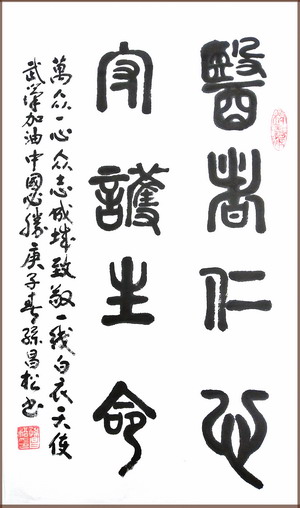 醫者仁心
守護生命
萬众一心众志成城致敬一线白衣天使
武漢加油中國必勝庚子春孫昌松书